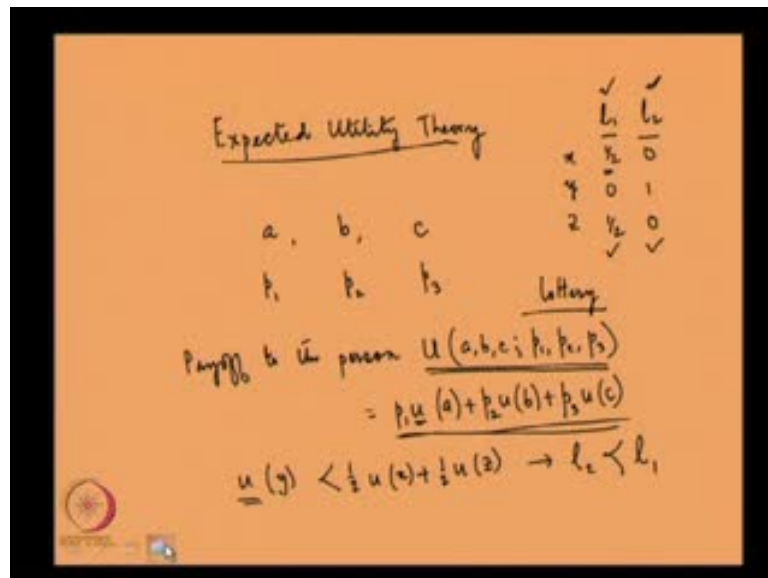 Expected Utility Theory
l₁ l₂
x ½ 0
y 0 1
z ½ 0
a, b, c
p₁ p₂ p₃
lottery
Payoff to the person U(a,b,c; p₁, p₂, p₃)
= p₁u(a)+p₂u(b)+p₃u(c)
u(y) < ½ u(x)+½ u(z) → l₂ ≺ l₁
NPTEL